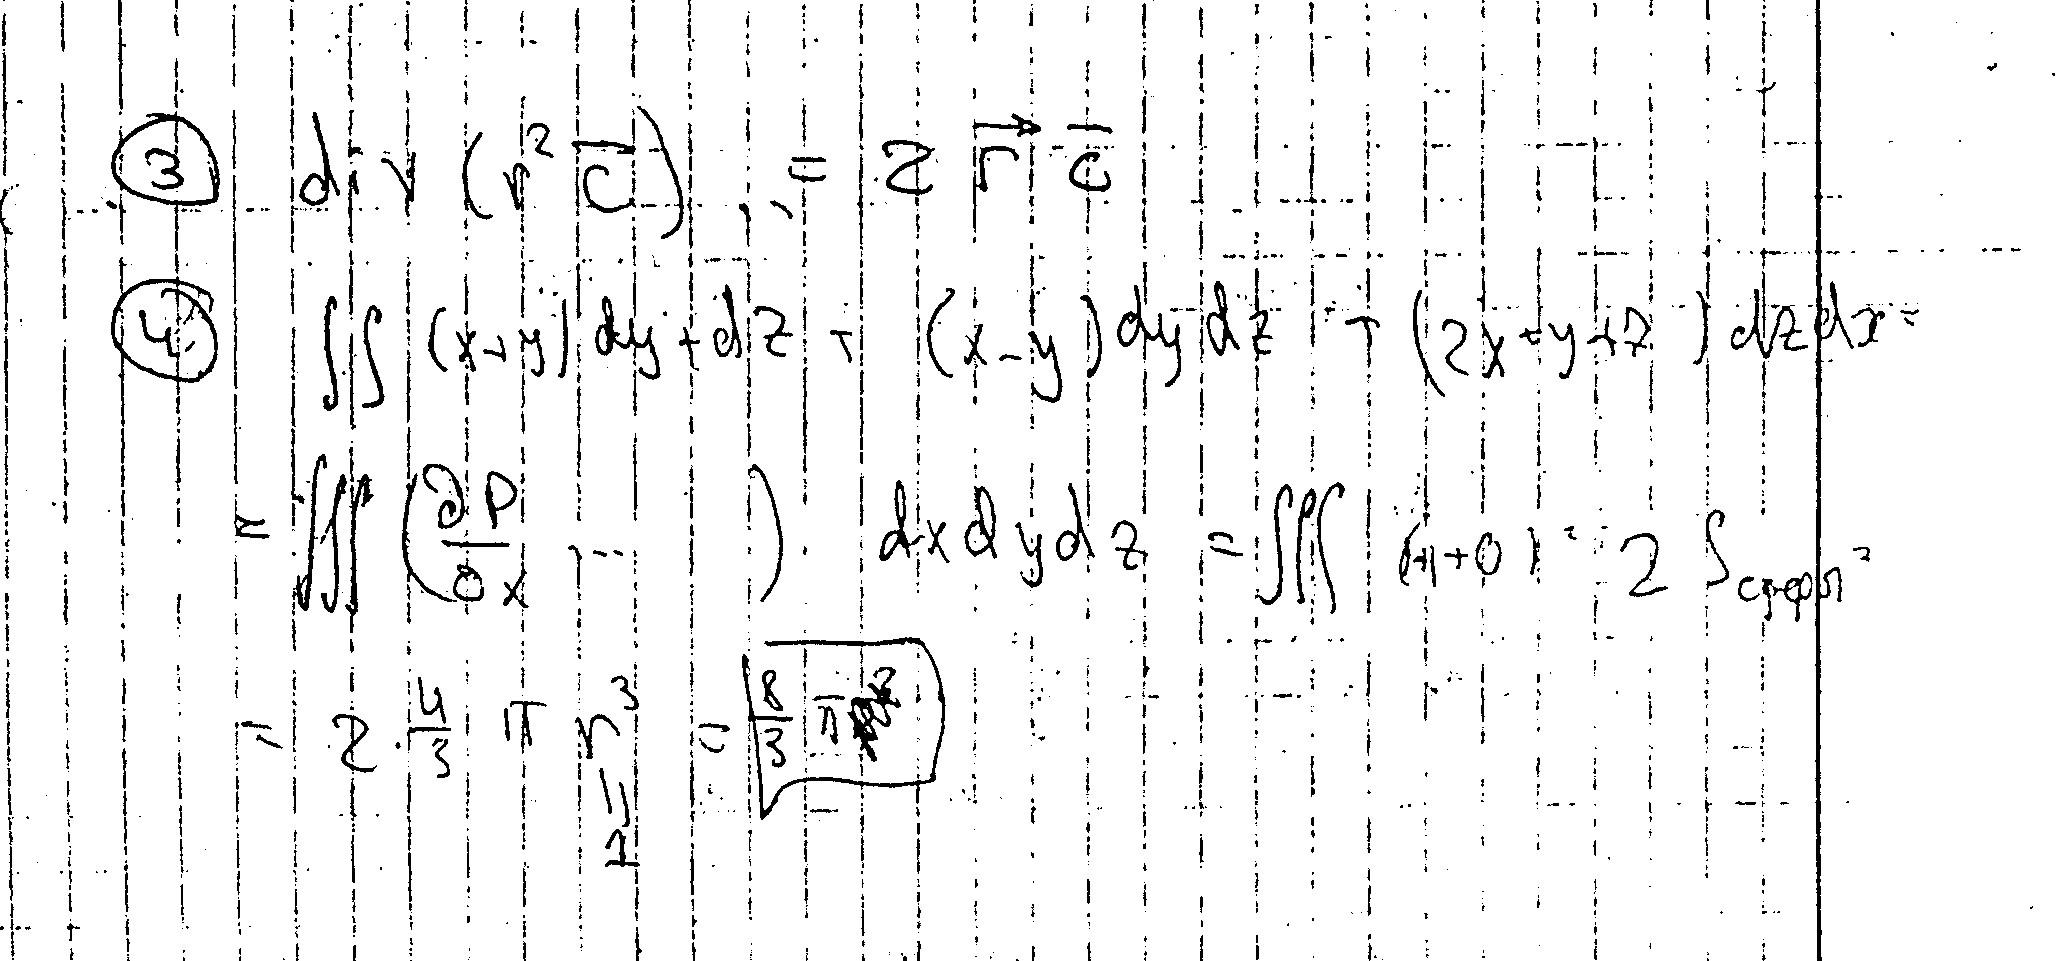 ③ div (r² c̅) = 2 r⃗ c̅
④ ∬ (x+y) dy+dz + (x-y) dy dz + (2x+y+z) dz dx =
= ∭ (∂P/∂x ... ) dxdydz = ∭ (1+1+0) = 2 S сферы =
= 2 · 4/3 π r³ = 8/3 π
= 1